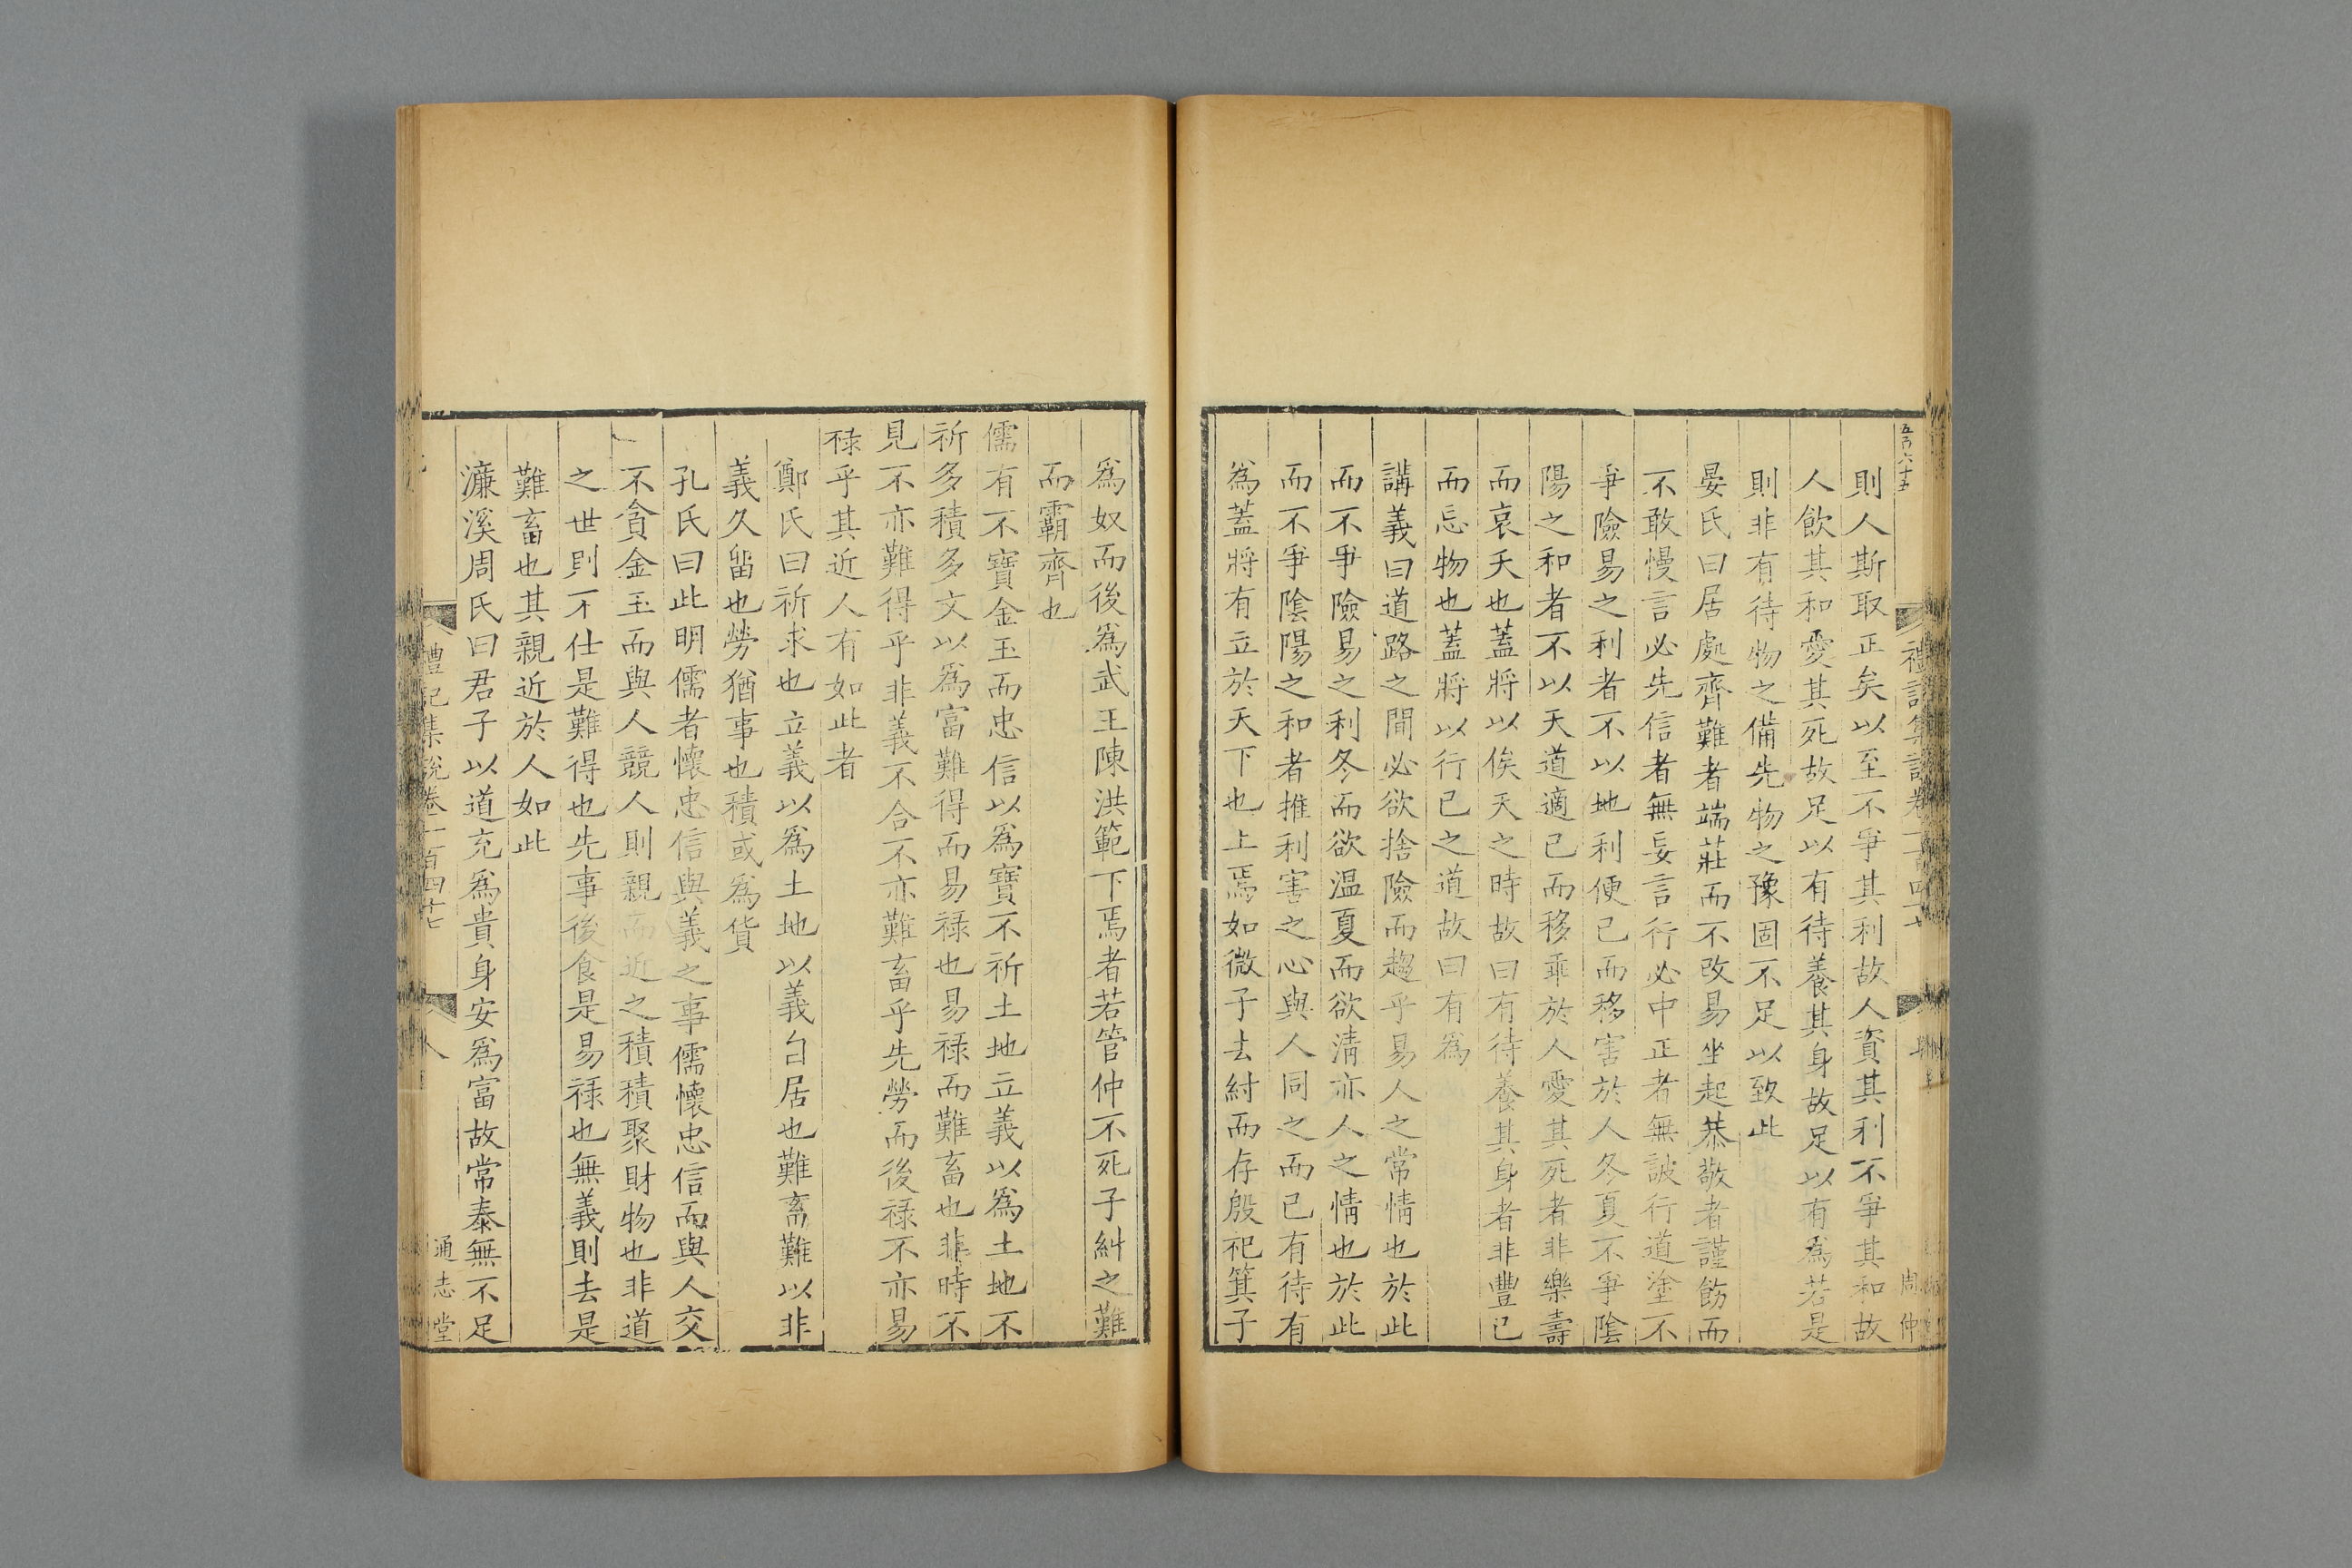 五百六十五
禮記集說卷一百四十七
周仲
則人斯取正矣以至不爭其利故人資其利不爭其和故
人飲其和愛其死故足以有待養其身故足以有爲若是
則非有待物之備先物之豫固不足以致此
晏氏曰居處齊難者端莊而不改易坐起恭敬者謹飭而
不敢慢言必先信者無妄言行必中正者無詖行道塗不
爭險易之利者不以地利便己而移害於人冬夏不爭陰
陽之和者不以天道適己而移乖於人愛其死者非樂壽
而哀夭也蓋將以俟天之時故曰有待養其身者非豐己
而忘物也蓋將以行己之道故曰有爲
講義曰道路之間必欲捨險而趨乎易人之常情也於此
而不爭險易之利冬而欲温夏而欲凊亦人之情也於此
而不爭陰陽之和者推利害之心與人同之而已有待有
爲蓋將有立於天下也上焉如微子去紂而存殷祀箕子
爲奴而後爲武王陳洪範下焉者若管仲不死子糾之難
而霸齊也
儒有不寶金玉而忠信以爲寶不祈土地立義以爲土地不
祈多積多文以爲富難得而易祿也易祿而難畜也非時不
見不亦難得乎非義不合不亦難畜乎先勞而後祿不亦易
祿乎其近人有如此者
鄭氏曰祈求也立義以爲土地以義自居也難畜難以非
義久留也勞猶事也積或爲貨
孔氏曰此明儒者懷忠信與義之事儒懷忠信而與人交
不貪金玉而與人競人則親而近之積積聚財物也非道
之世則不仕是難得也先事後食是易祿也無義則去是
難畜也其親近於人如此
濂溪周氏曰君子以道充爲貴身安爲富故常泰無不足
禮記集說卷一百四十七
八
通志堂